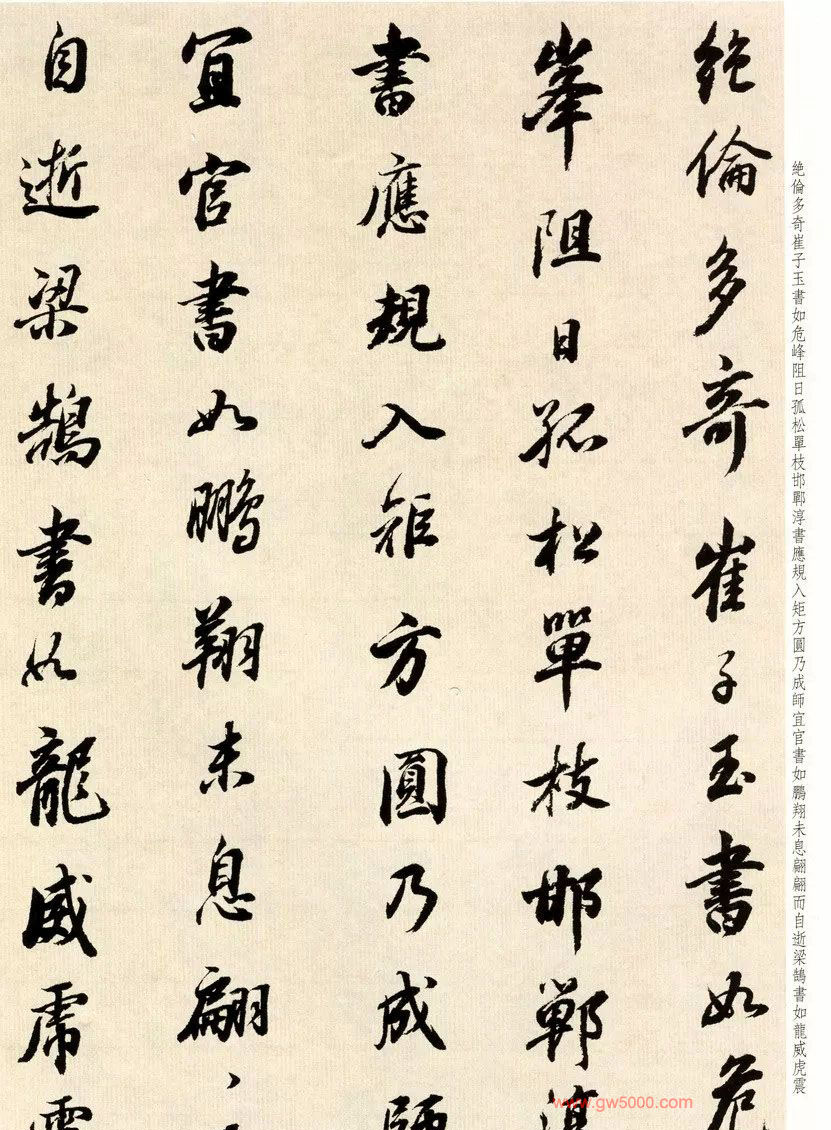 絶倫多奇崔子玉書如危峰阻日孤松單枝邯鄲淳書應規入矩方圓乃成師宜官書如鵬翔未息翩翩而自逝梁鵠書如龍威虎震
絶倫多奇崔子玉書如危
峯阻日孤松單枝邯鄲淳
書應規入矩方圓乃成師
宜官書如鵬翔未息翩〻而
自逝梁鵠書如龍威虎震
www.gw5000.com